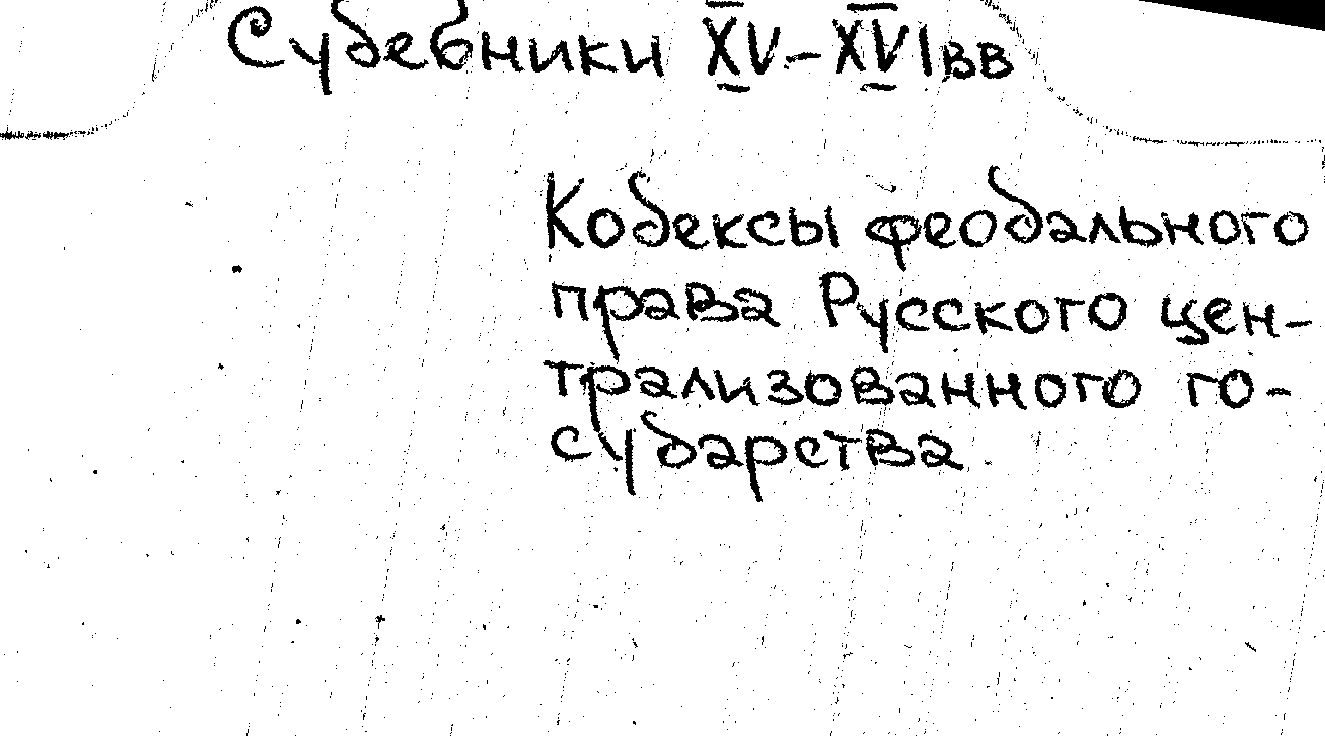 Судебники XV-XVI вв
Кодексы феодального
права Русского цен-
трализованного го-
сударства